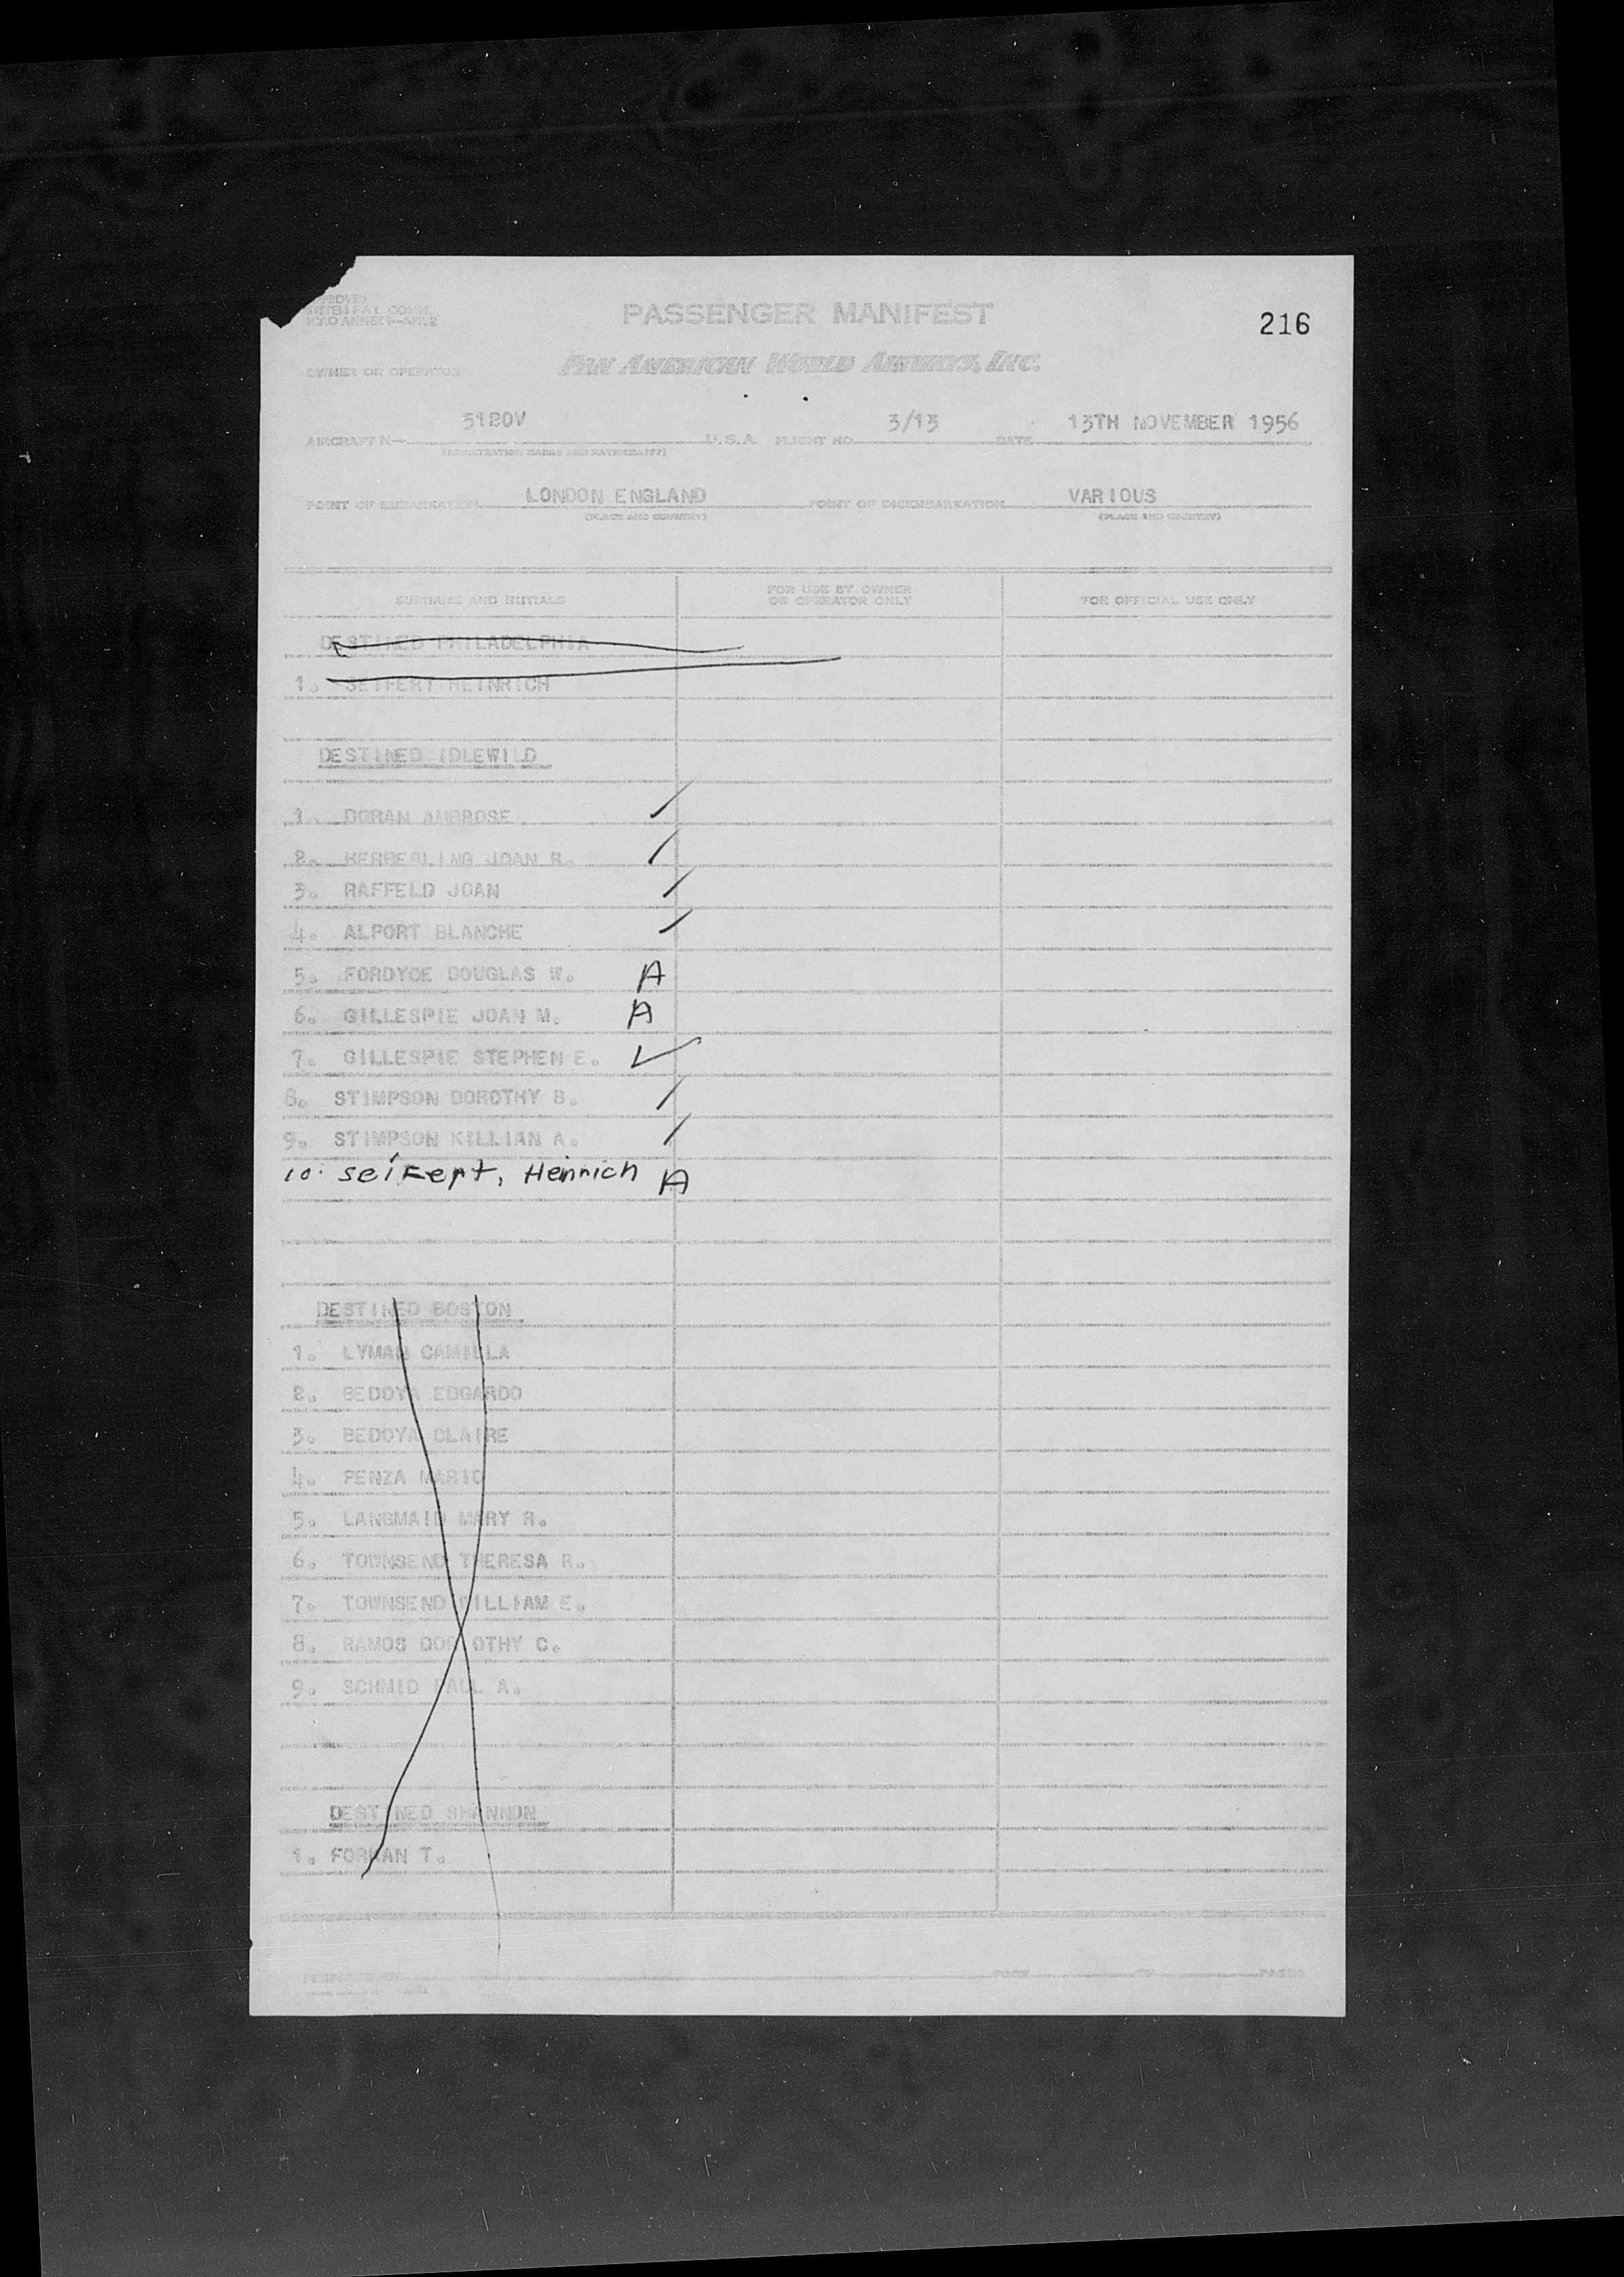 PASSENGER MANIFEST
216
PAN AMERICAN WORLD AIRWAYS, INC.
OWNER OR OPERATOR
AIRCRAFT N— 5180V U.S.A. FLIGHT NO. 3/13 DATE 13TH NOVEMBER 1956
(REGISTRATION MARKS AND NATIONALITY)
POINT OF EMBARKATION LONDON ENGLAND POINT OF DISEMBARKATION VARIOUS
(PLACE AND COUNTRY) (PLACE AND COUNTRY)
SURNAME AND INITIALS FOR USE BY OWNER OR OPERATOR ONLY FOR OFFICIAL USE ONLY
DESTINED PHILADELPHIA
1. SEIFERT HEINRICH
DESTINED IDLEWILD
1. DORAN AMBROSE
2. HERBERLING JOAN R.
3. RAFFELD JOAN
4. ALPORT BLANCHE
5. FORDYCE DOUGLAS W. A
6. GILLESPIE JOAN M. A
7. GILLESPIE STEPHEN E.
8. STIMPSON DOROTHY B.
9. STIMPSON KILLIAN A.
10. Seifert, Heinrich A
DESTINED BOSTON
1. LYMAN CAMILLA
2. BEDOYA EDGARDO
3. BEDOYA CLAIRE
4. PENZA MARIO
5. LANGMAID MARY R.
6. TOWNSEND THERESA R.
7. TOWNSEND WILLIAM E.
8. RAMOS DOROTHY C.
9. SCHMID PAUL A.
DESTINED SHANNON
1. FORMAN T.
PAGE OF PAGES